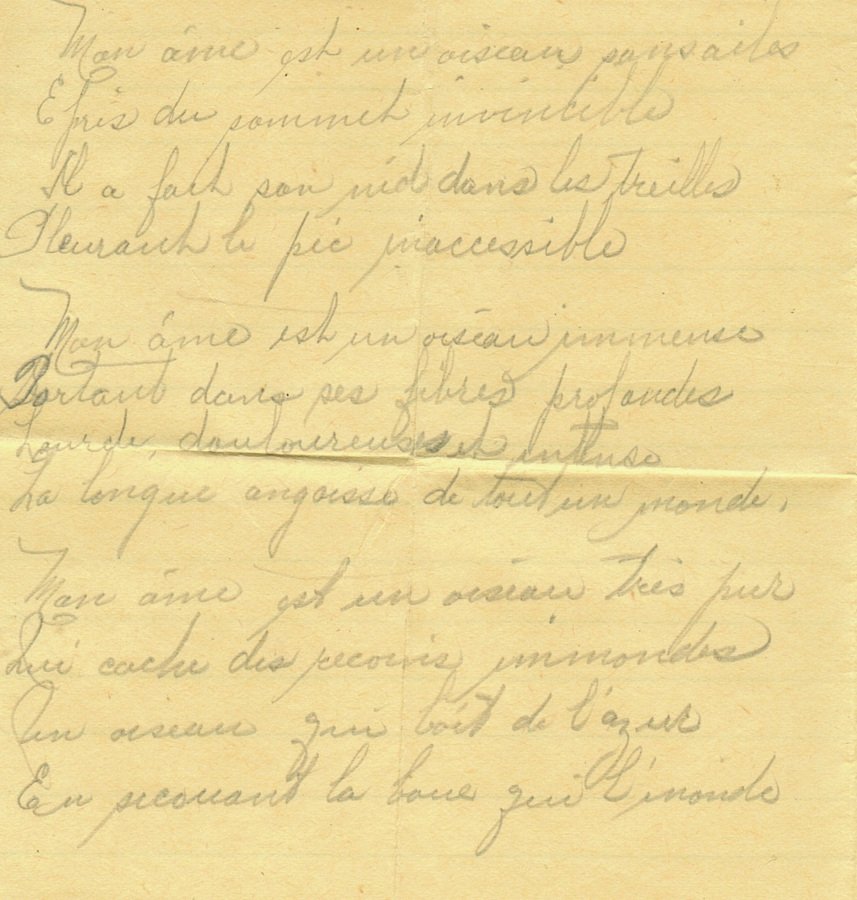 Mon âme est un oiseau sans ailes
Epris du sommet invincible
Il a fait son nid dans les treilles
Pleurant le pic inaccessible
Mon âme est un oiseau immense
Portant dans ses fibres profondes
Lourde, douloureuse et intense
La longue angoisse de tout un monde.
Mon âme est un oiseau très pur
Qui cache des recoins immondes
Un oiseau qui boit de l'azur
En secouant la boue qui l'inonde